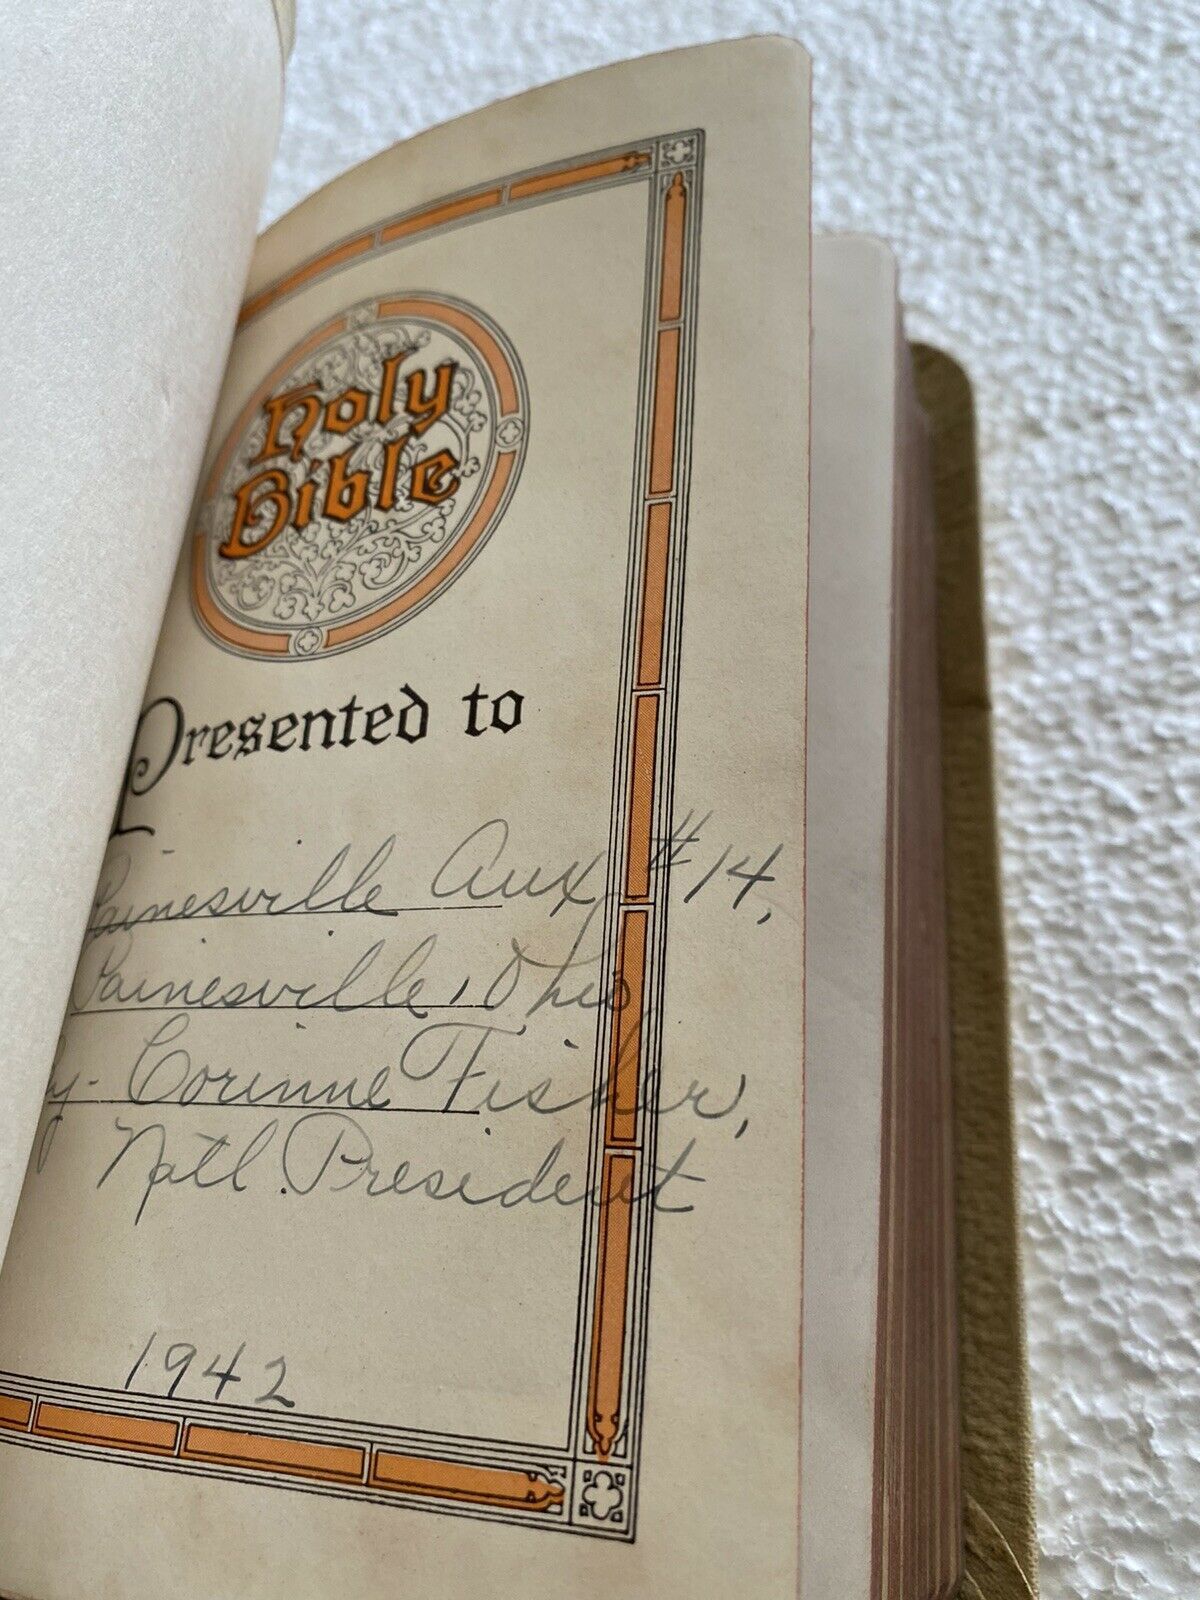 Holy
Bible
Presented to
Painesville Aux #14,
Painesville, Ohio
By - Corinne Fisher,
Natl. President
1942